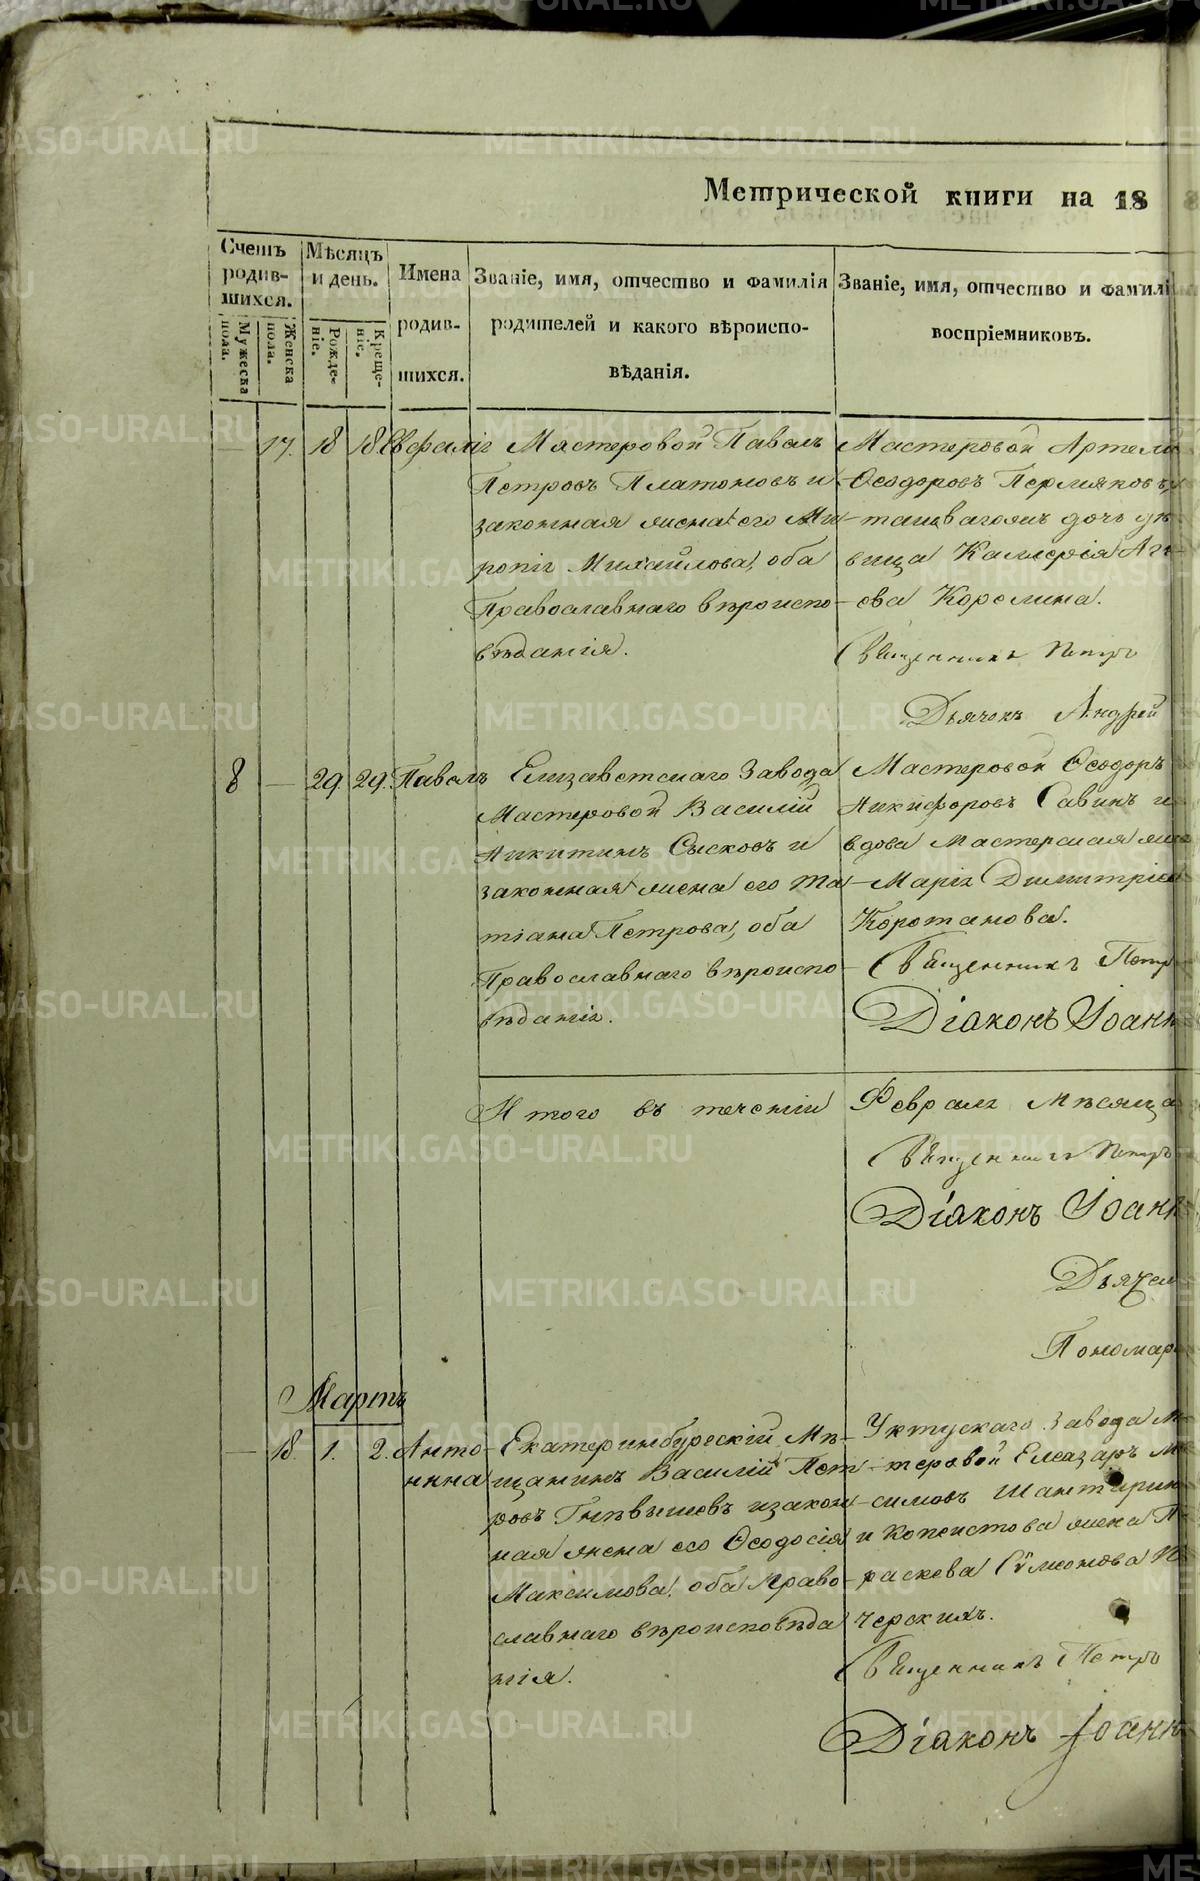 Метрической книги на 18
Счетъ родив- шихся.
Мужеска пола.
Женска пола.
Мѣсяцъ и день.
Рожде- ніе.
Креще- ніе.
Имена родив- шихся.
Званіе, имя, отчество и фамилія родителей и какого вѣроиспо- вѣданія.
Званіе, имя, отчество и фамилі воспріемниковъ.
— 17. 18 18
Мастеровой Павелъ
Петровъ Платоновъ и
законная жена его Ми-
ропія Михайлова, оба
Православнаго вѣроиспо-
вѣданія.
Мастеровой Артемі
Ѳеодоровъ Пермяковъ,
дочь дѣ-
вица
ова Корелина.
Священникъ Петръ
Дьячокъ Андрей
8 — 29. 29. Павелъ
Елизаветскаго Завода
Мастеровой Василій
Никитинъ Сысковъ и
законная жена его Та-
тіана Петрова, оба
Православнаго вѣроиспо-
вѣданія.
Мастеровой Ѳеодоръ
Никифоровъ Савинъ и
вдова Мастерская же
Марія Димитріев
Коротанова.
Священникъ Петр
Діаконъ Іоанн
Итого въ теченіи Февраля Мѣсяца
Священникъ Петръ
Діаконъ Іоанн
Дьячек
Пономар
Мартъ
— 18. 1. 2. Анто-
нина
Екатеринбургскій Мѣ-
щанинъ Василій Пет-
ровъ Гнѣвышевъ и закон-
ная жена его Ѳеодосія
Максимова, оба Право-
славнаго вѣроисповѣда
нія.
Уктускаго Завода Ма
стеровой Елеазаръ Ма
симовъ
и Копеистова жена Па
раскева Сѵмеонова П
черскихъ.
Священникъ Петръ
Діаконъ Іоанн
METRIKI.GASO-URAL.RU